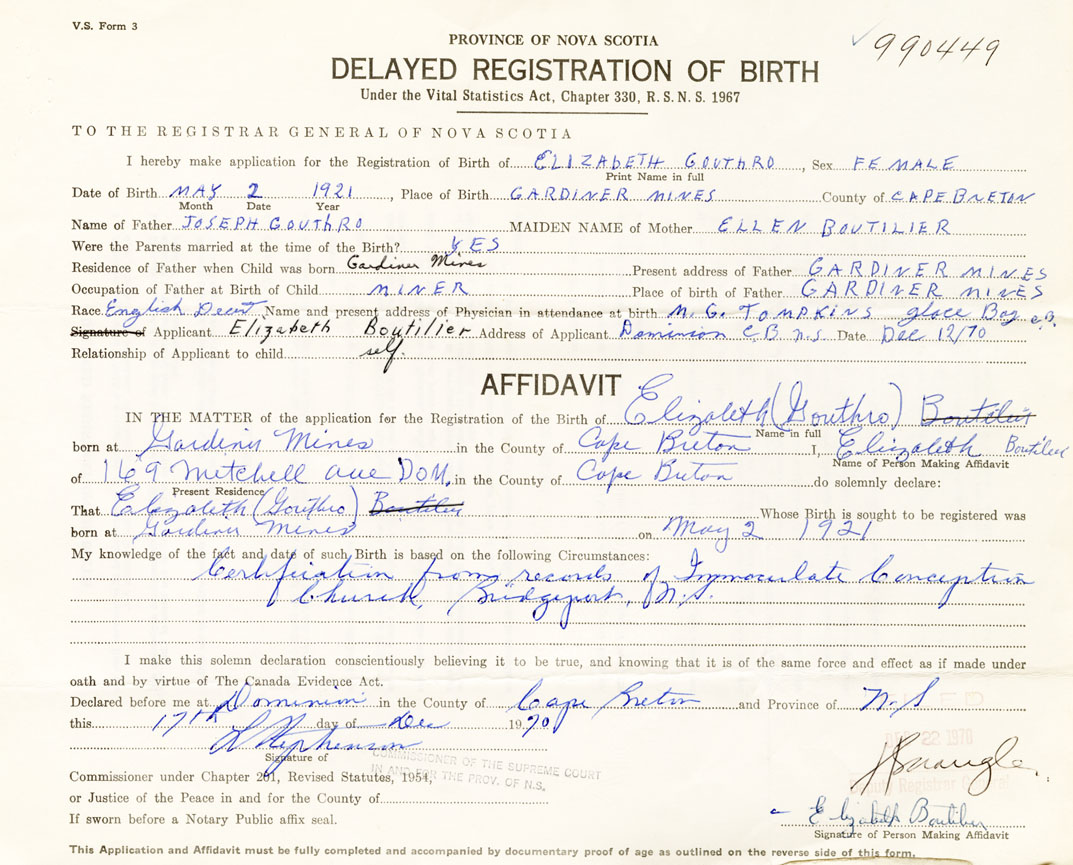 V.S. Form 3
990449
PROVINCE OF NOVA SCOTIA
DELAYED REGISTRATION OF BIRTH
Under the Vital Statistics Act, Chapter 330, R.S.N.S. 1967
TO THE REGISTRAR GENERAL OF NOVA SCOTIA
I hereby make application for the Registration of Birth of ELIZABETH GOUTHRO, Sex FEMALE
Print Name in full
Date of Birth MAY 2 1921, Place of Birth GARDINER MINES County of CAPE BRETON
Month Date Year
Name of Father JOSEPH GOUTHRO MAIDEN NAME of Mother ELLEN BOUTILIER
Were the Parents married at the time of the Birth? YES
Residence of Father when Child was born Gardiner Mines Present address of Father GARDINER MINES
Occupation of Father at Birth of Child MINER Place of birth of Father GARDINER MINES
Race English Name and present address of Physician in attendance at birth M. G. TOMPKINS glace Bay C.B.
Signature of Applicant Elizabeth Boutilier Address of Applicant Dominion C.B. N.S Date Dec 12/70
Relationship of Applicant to child self.
AFFIDAVIT
IN THE MATTER of the application for the Registration of the Birth of Elizabeth (Gouthro) Boutilier
Name in full
born at Gardiner Mines in the County of Cape Breton I, Elizabeth Boutilier
Name of Person Making Affidavit
of 169 Mitchell ave DOM. in the County of Cape Breton do solemnly declare:
Present Residence
That Elizabeth (Gouthro) Boutilier Whose Birth is sought to be registered was
born at Gardiner Mines on May 2 1921
My knowledge of the fact and date of such Birth is based on the following Circumstances:
Certification from records of Immaculate Conception
Church, Bridgeport, N.S.
I make this solemn declaration conscientiously believing it to be true, and knowing that it is of the same force and effect as if made under
oath and by virtue of The Canada Evidence Act.
Declared before me at Dominion in the County of Cape Breton and Province of N.S
this 17th day of Dec 1970
DEC 22 1970
Stephenson
Signature of
COMMISSIONER OF THE SUPREME COURT
IN AND FOR THE PROV. OF N.S.
Commissioner under Chapter 201, Revised Statutes, 1954,
Deputy Registrar General
or Justice of the Peace in and for the County of
Elizabeth Boutilier
If sworn before a Notary Public affix seal.
Signature of Person Making Affidavit
This Application and Affidavit must be fully completed and accompanied by documentary proof of age as outlined on the reverse side of this form.